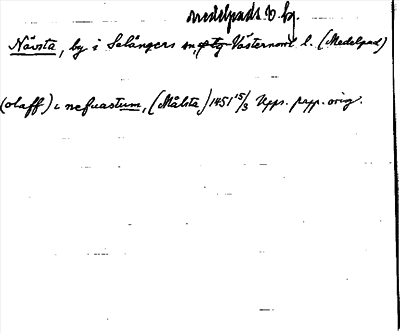 medelpads v. kg.
Nävsta, by i Selångers sn, Västernorrl. l. (Medelpad)
(olaff) i nefuastum, (Målsta) 1451 15/3 Upps. papp. orig.